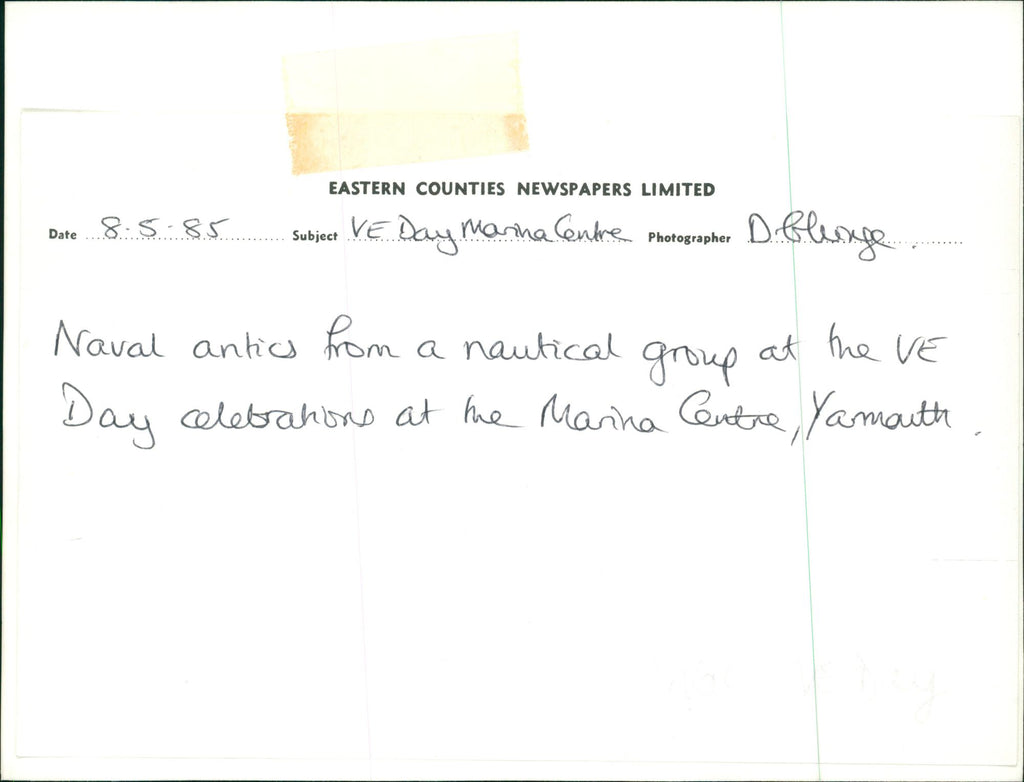 EASTERN COUNTIES NEWSPAPERS LIMITED
Date 8.5.85 Subject VE Day Marina Centre Photographer D
Naval antics from a nautical group at the VE
Day celebrations at the Marina Centre, Yarmouth.